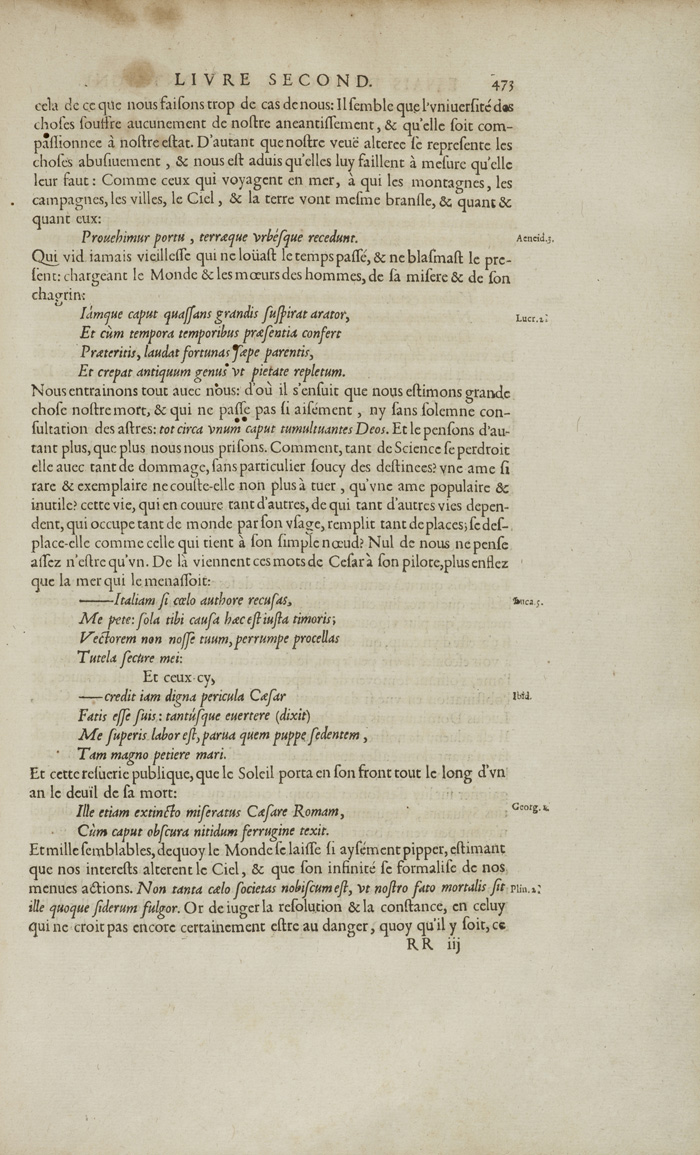 LIVRE SECOND. 473
cela de ce que nous faisons trop de cas de nous: Il semble que l'vniuersité des
choses souffre aucunement de nostre aneantissement, & qu'elle soit com-
passionnee à nostre estat. D'autant que nostre veuë alteree se represente les
choses abusiuement, & nous est aduis qu'elles luy faillent à mesure qu'elle
leur faut: Comme ceux qui voyagent en mer, à qui les montagnes, les
campagnes, les villes, le Ciel, & la terre vont mesme bransle, & quant &
quant eux:
Prouehimur portu, terræque vrbésque recedunt. Aeneid.3.
Qui vid iamais vieillesse qui ne loüast le temps passé, & ne blasmast le pre-
sent: chargeant le Monde & les mœurs des hommes, de sa misere & de son
chagrin:
Iámque caput quassans grandis suspirat arator, Lucr. 2.
Et cùm tempora temporibus præsentia confert
Præteritis, laudat fortunas sæpe parentis,
Et crepat antiquum genus vt pietate repletum.
Nous entrainons tout auec nous: d'où il s'ensuit que nous estimons grande
chose nostre mort, & qui ne passe pas si aisément, ny sans solemne con-
sultation des astres: tot circa vnum caput tumultuantes Deos. Et le pensons d'au-
tant plus, que plus nous nous prisons. Comment, tant de Science se perdroit
elle auec tant de dommage, sans particulier soucy des destinees? vne ame si
rare & exemplaire ne couste-elle non plus à tuer, qu'vne ame populaire &
inutile? cette vie, qui en couure tant d'autres, de qui tant d'autres vies depen-
dent, qui occupe tant de monde par son vsage, remplit tant de places, se des-
place-elle comme celle qui tient à son simple nœud? Nul de nous ne pense
assez n'estre qu'vn. De là viennent ces mots de Cesar à son pilote, plus enflez
que la mer qui le menassoit:
——Italiam si cœlo authore recusas, Luca. 5.
Me pete: sola tibi causa hæc est iusta timoris;
Vectorem non nosse tuum, perrumpe procellas
Tutela secure mei:
Et ceux cy,
——credit iam digna pericula Cæsar Ibid.
Fatis esse suis: tantúsque euertere (dixit)
Me superis labor est, parua quem puppe sedentem,
Tam magno petiere mari.
Et cette resuerie publique, que le Soleil porta en son front tout le long d'vn
an le deuil de sa mort:
Ille etiam extincto miseratus Cæsare Romam, Georg. 1.
Cùm caput obscura nitidum ferrugine texit.
Et mille semblables, dequoy le Monde se laisse si aysément pipper, estimant
que nos interests alterent le Ciel, & que son infinité se formalise de nos
menues actions. Non tanta cælo societas nobiscum est, vt nostro fato mortalis sit Plin. 2.
ille quoque siderum fulgor. Or de iuger la resolution & la constance, en celuy
qui ne croit pas encore certainement estre au danger, quoy qu'il y soit, ce
RR iij